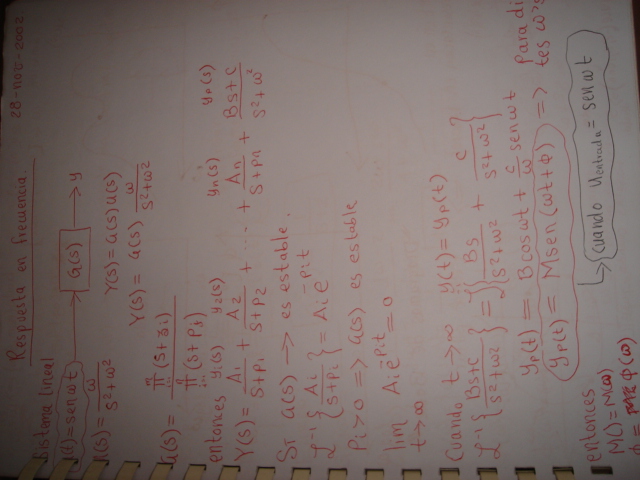 28-nov-2002
Respuesta en frecuencia.
Sistema lineal
u(t)=senωt → G(s) → y
U(s)= ω/(s²+ω²) Y(s)=G(s)U(s)
Y(s)= G(s) ω/(s²+ω²)
G(s)= π(s+zi)/π(s+Pi)
entonces y1(s) y2(s) yn(s) yp(s)
Y(s)= A1/(s+P1) + A2/(s+P2) + ... + An/(s+Pn) + (Bs+c)/(s²+ω²)
Si G(s) → es estable.
ℒ⁻¹{Ai/(s+Pi)} = Ai e^-Pit
Pi>0 => G(s) es estable
lim t→∞ Ai e^Pit = 0
Cuando t→∞ y(t)=yp(t)
ℒ⁻¹{(Bs+c)/(s²+ω²)} = ℒ{Bs/(s²+ω²) + c/(s²+ω²)}
yp(t) = Bcosωt + c/ω senωt
yp(t) = Msen(ωt+ϕ) => para di
tes ω's
Cuando uentrada = senωt
entonces
M()=M(ω)
ϕ = ϕ(ω)